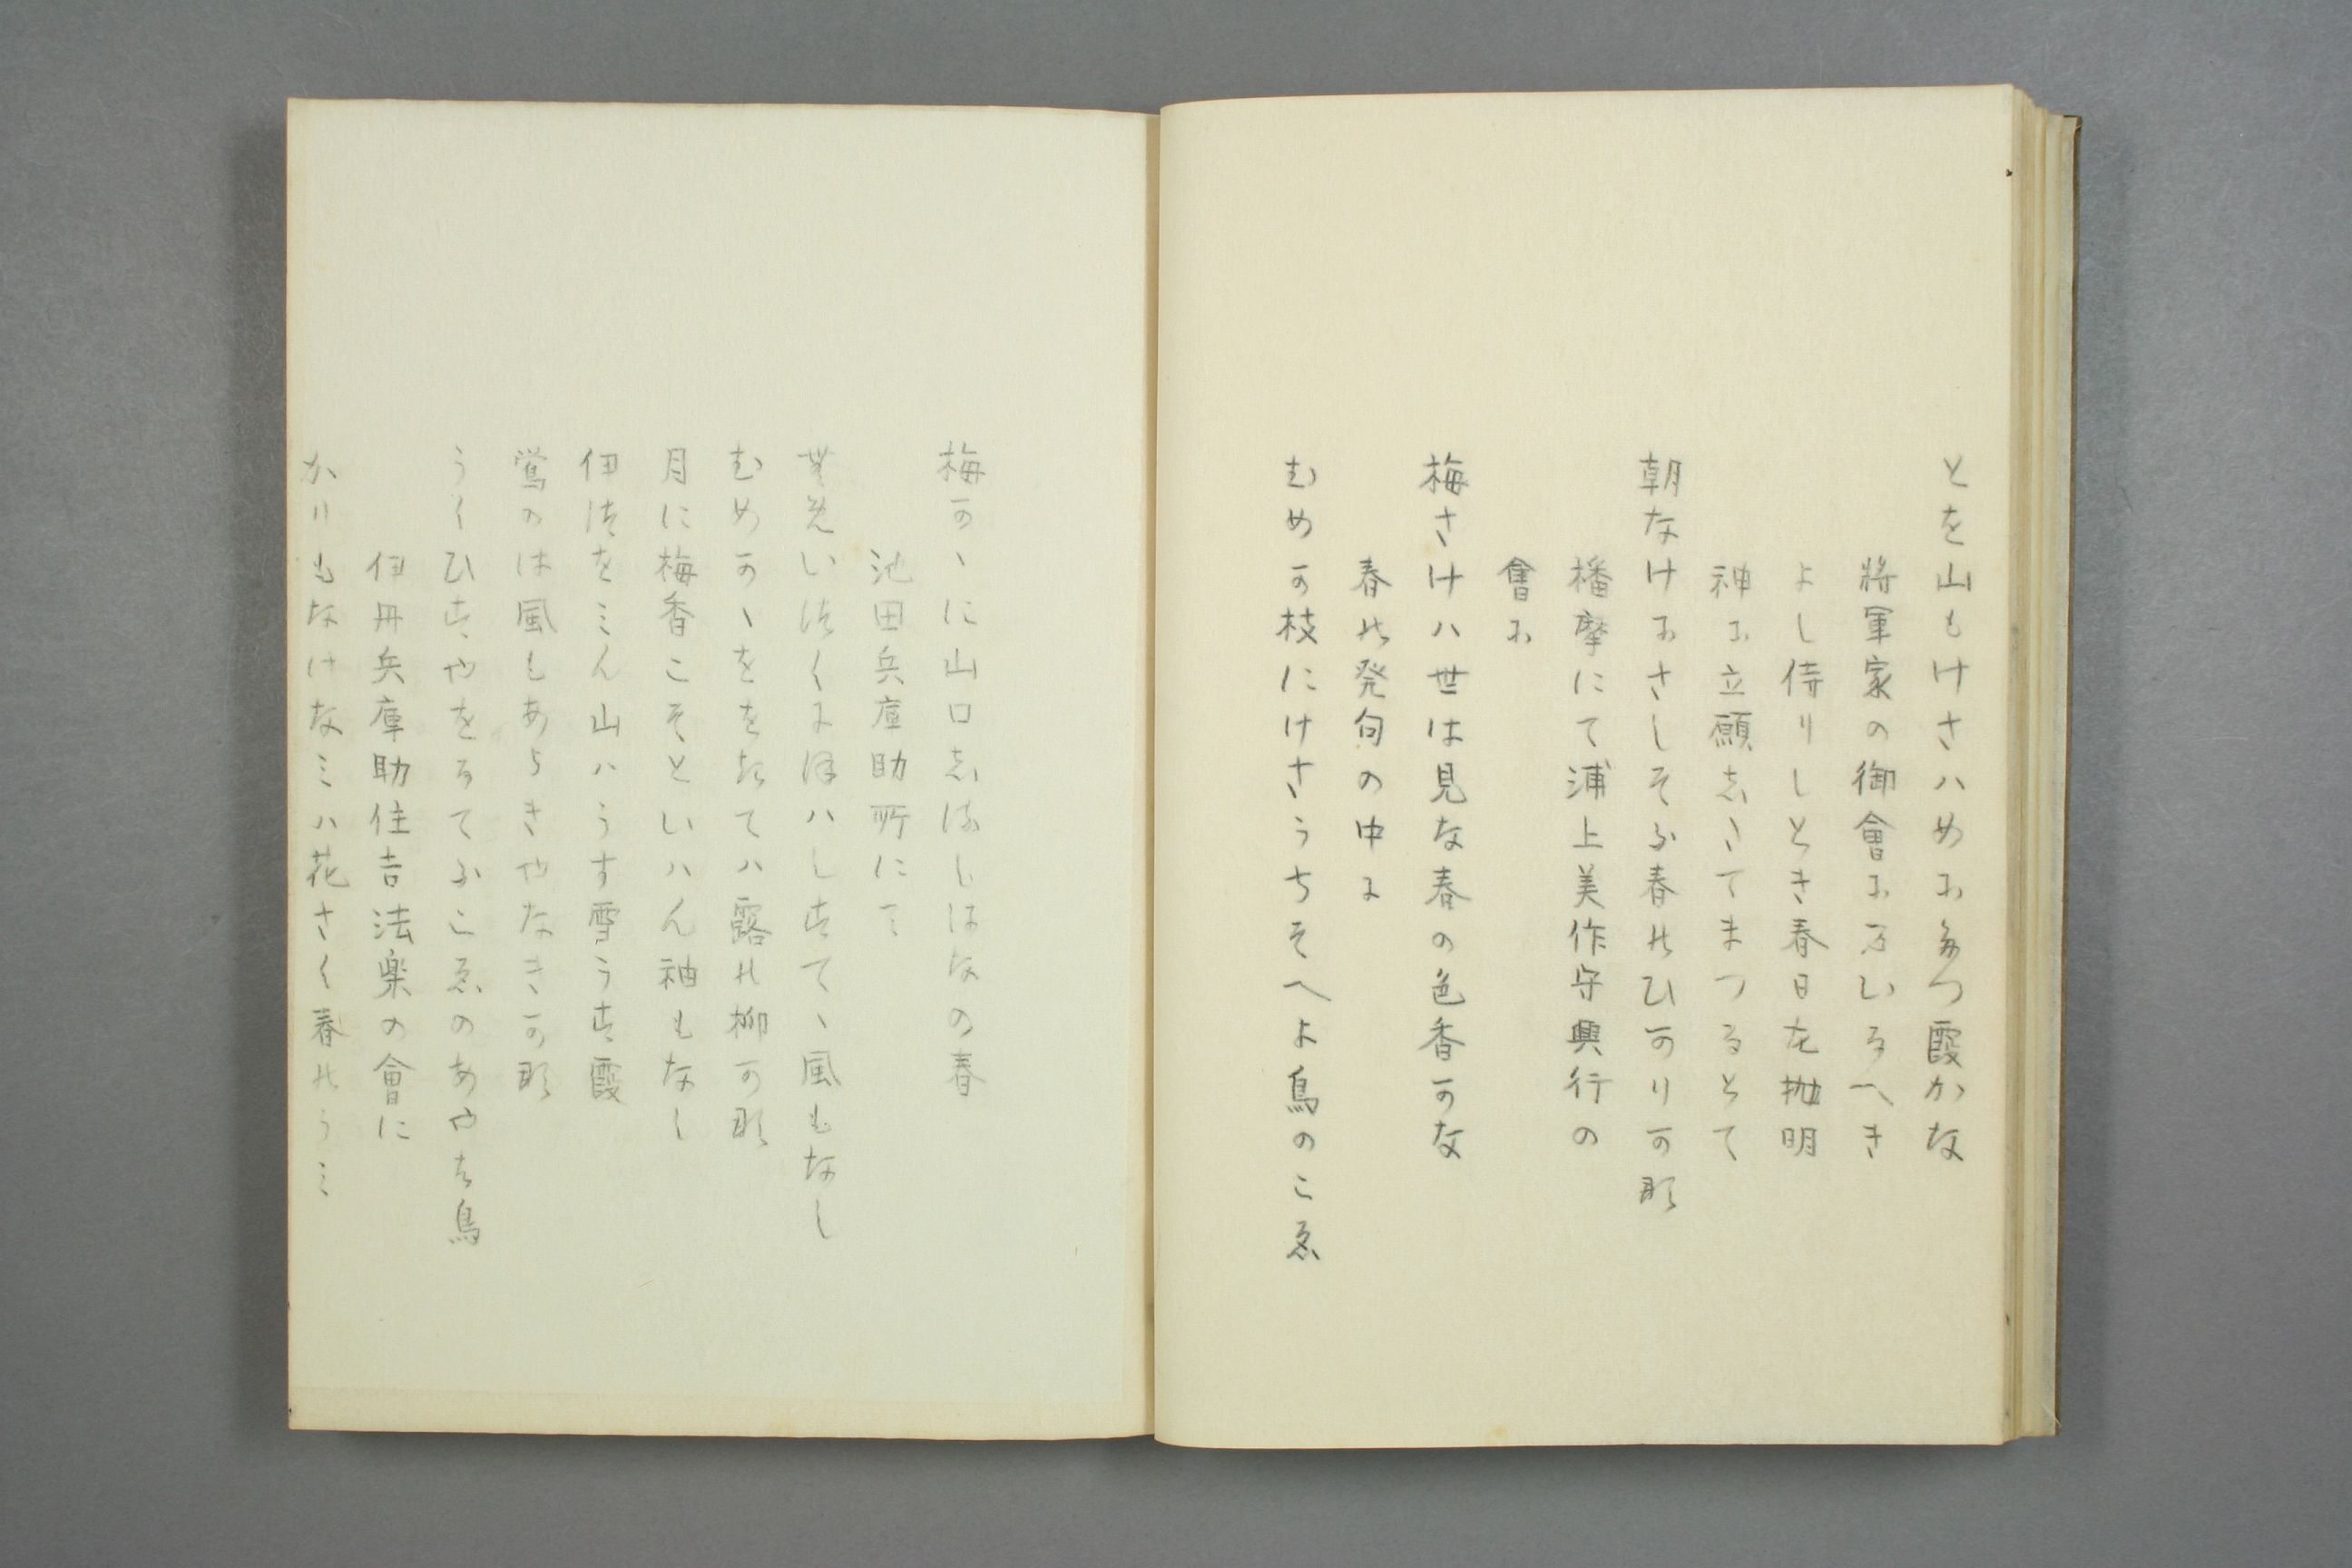 とを山もけさハめにたつ霞かな
将軍家の御會にまいるへき
よし侍りしとき春日左抛明
神に立願志きてまつるとて
朝なけにさしそふ春のひかりかな
播摩にて浦上美作守興行の
會に
梅さけハ世は見な春の色香かな
春の発句の中に
むめか枝にけさうちそへよ鳥のこゑ
梅かゝに山口志るしはなの春
池田兵庫助所にて
花いつくにほハしすてゝ風もなし
むめかゝををきてハ露の柳かな
月に梅香こそといハん袖もなし
伊つをミん山ハうす雪うす霞
鶯のは風もあらきやなきかな
うくひすやをるてふこゑのあやは鳥
伊丹兵庫助住吉法楽の會に
かりもなけなミハ花さく春のうミ